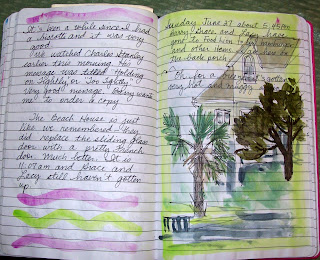 It's been a while since I had
a and it was very
good.
We watched Charles Stanley
earlier this morning. His
message was titled Holding
on Tightly or Too Tightly.
Very good message. Going
me to order a copy.
The Beach House is just
like we remembered. They
did replace the sliding glass
door with a pretty French
door. Much better. It is
11:07 am and Grace and
Lacy still haven't gotten
up.
Sunday, June 27 about 5:
Barry, Grace and Lacy have
gone to Food Lion for
and other items. I am here on
the back porch.
Oh, for a breeze. It's gotten
very hot and muggy.